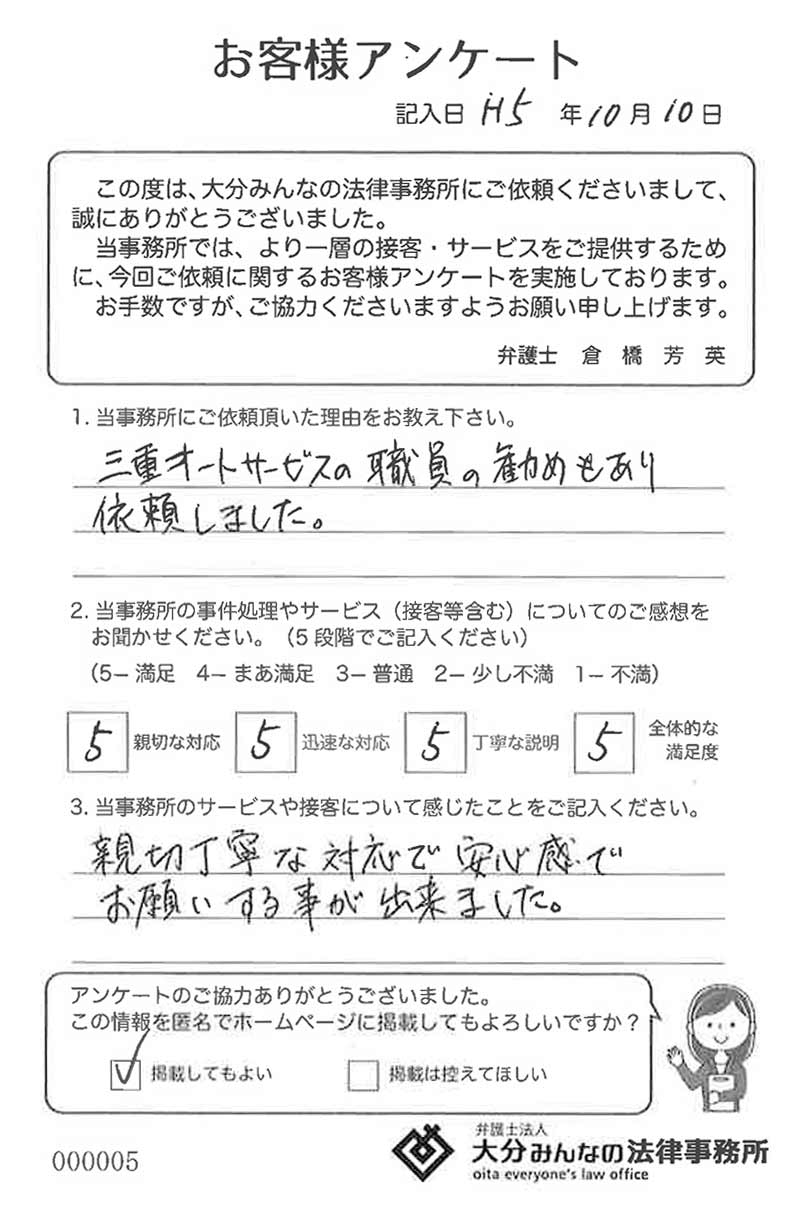 お客様アンケート
記入日 H5 年10月10日
この度は、大分みんなの法律事務所にご依頼くださいまして、
誠にありがとうございました。
当事務所では、より一層の接客・サービスをご提供するため
に、今回ご依頼に関するお客様アンケートを実施しております。
お手数ですが、ご協力くださいますようお願い申し上げます。
弁護士 倉橋芳英
1. 当事務所にご依頼頂いた理由をお教え下さい。
三重オートサービスの職員の勧めもあり
依頼しました。
2. 当事務所の事件処理やサービス（接客等含む）についてのご感想を
お聞かせください。（5段階でご記入ください）
（5－満足 4－まあ満足 3－普通 2－少し不満 1－不満）
5 親切な対応 5 迅速な対応 5 丁寧な説明 5 全体的な
満足度
3. 当事務所のサービスや接客について感じたことをご記入ください。
親切丁寧な対応で安心感で
お願いする事が出来ました。
アンケートのご協力ありがとうございました。
この情報を匿名でホームページに掲載してもよろしいですか？
掲載してもよい 掲載は控えてほしい
000005
弁護士法人
大分みんなの法律事務所
oita everyone's law office